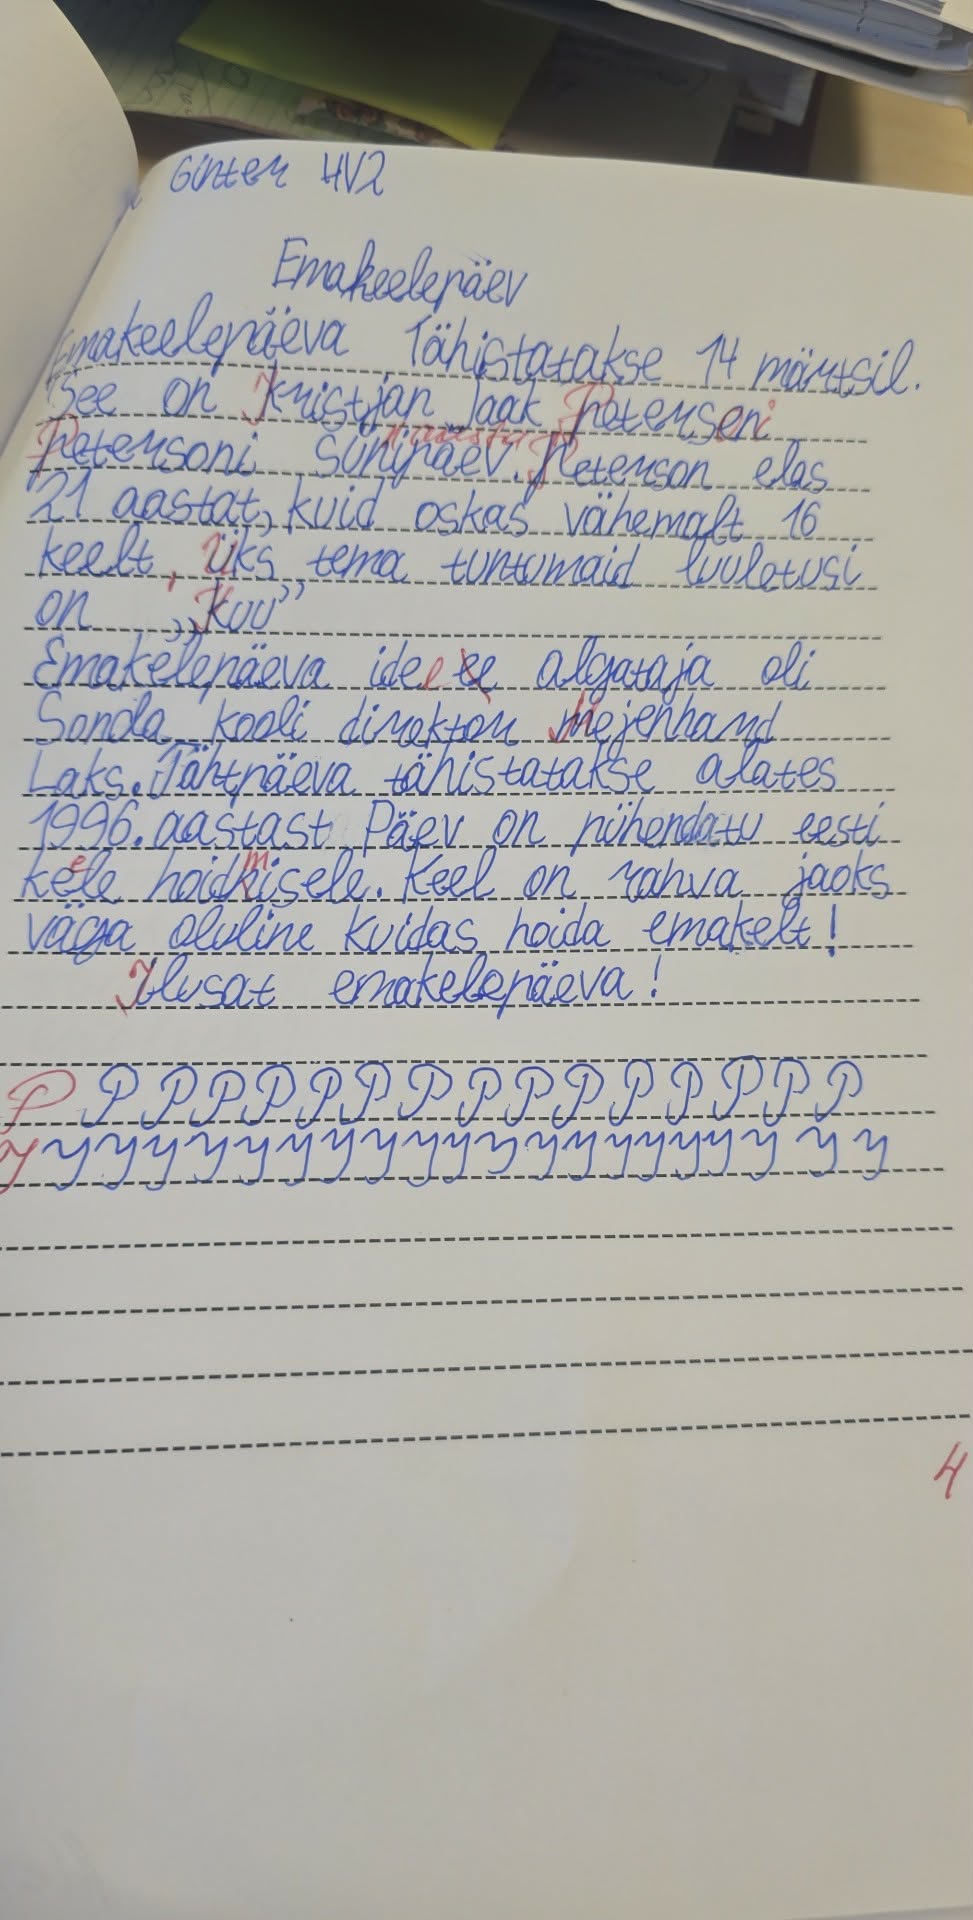 Ginter 4V2
Emakeelepäev
Emakeelepäeva Tähistatakse 14 märtsil.
See on Kristjan Jaak Peterseni
Petersoni sünipäev. Peterson elas
21 aastat, kuid oskas vähemalt 16
keelt, üks tema tuntumaid luuletusi
on „Kuu”
Emakelepäeva idee algataja oli
Sonda kooli direktor Mejenhard
Laks. Tähtpäeva tähistatakse alates
1996. aastast Päev on pühendatu eesti
keele hoidmisele. Keel on rahva jaoks
väga oluline kuidas hoida emakelt!
Ilusat emakelepäeva!
P P P P P P P P P P P P P P P P
y y y y y y y y y y y y y y y y y y
4